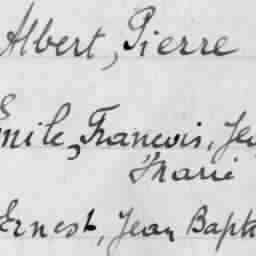 Albert, Pierre
Emile, François, Jea
Marie
Ernest, Jean Bapti